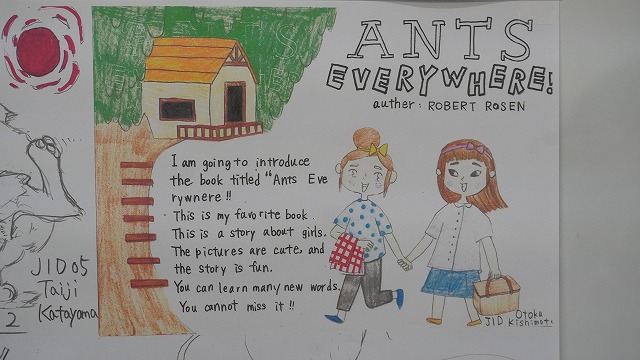 ANTS
EVERYWHERE!
auther: ROBERT ROSEN
I am going to introduce
the book titled "Ants Eve
rywhere!!
This is my favorite book.
This is a story about girls.
The pictures are cute, and
the story is fun.
You can learn many new words.
You cannot miss it!!
JID05
Taiji
Katayama
2
JID
Otoka
Kishimoto